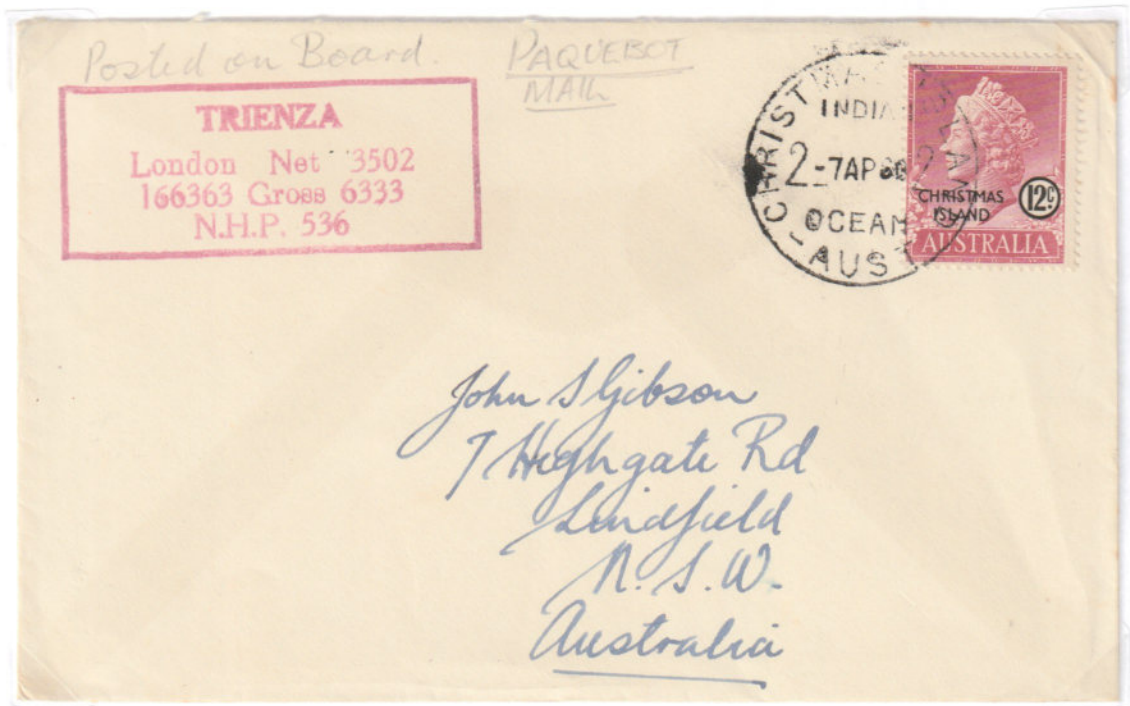 Posted on Board.
PAQUEBOT
MAIL
TRIENZA
London Net 3502
166363 Gross 6333
N.H.P. 536
CHRISTMAS ISLAND
INDIAN
2-7AP60
OCEAN
-AUST-
CHRISTMAS
ISLAND
12c
AUSTRALIA
John S Gibson
7 Highgate Rd
Lindfield
N.S.W.
Australia